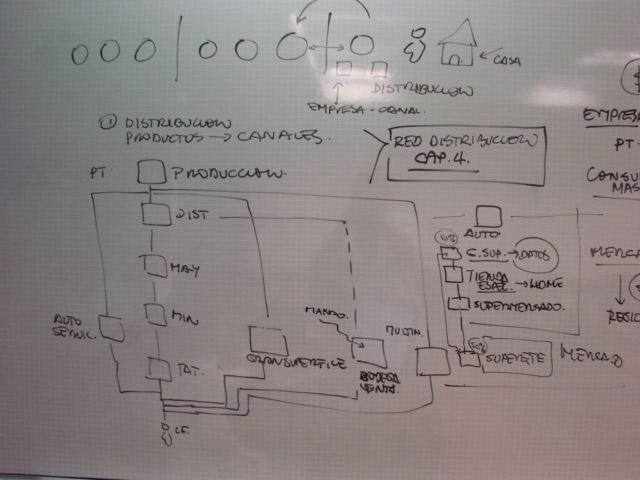 ← CASA
DISTRIBUCION
EMPRESA - CANAL.
① DISTRIBUCION
PRODUCTOS → CANALES.
RED DISTRIBUCION
CAP. 4.
EMPRESA
PT.
PT. PRODUCCION.
DIST
MAY
MIN
TAT.
AUTO
SERVIC.
C.F.
GRAN SUPERFICE
MULTIN.
BODEGA
AUTO
50%
C. SUP. → DATOS
TIENDA
ESPEC. → HOME
SUPERMERCADO.
50%
SUPERETE
MERCADO
CONSU
MAS
MERCA